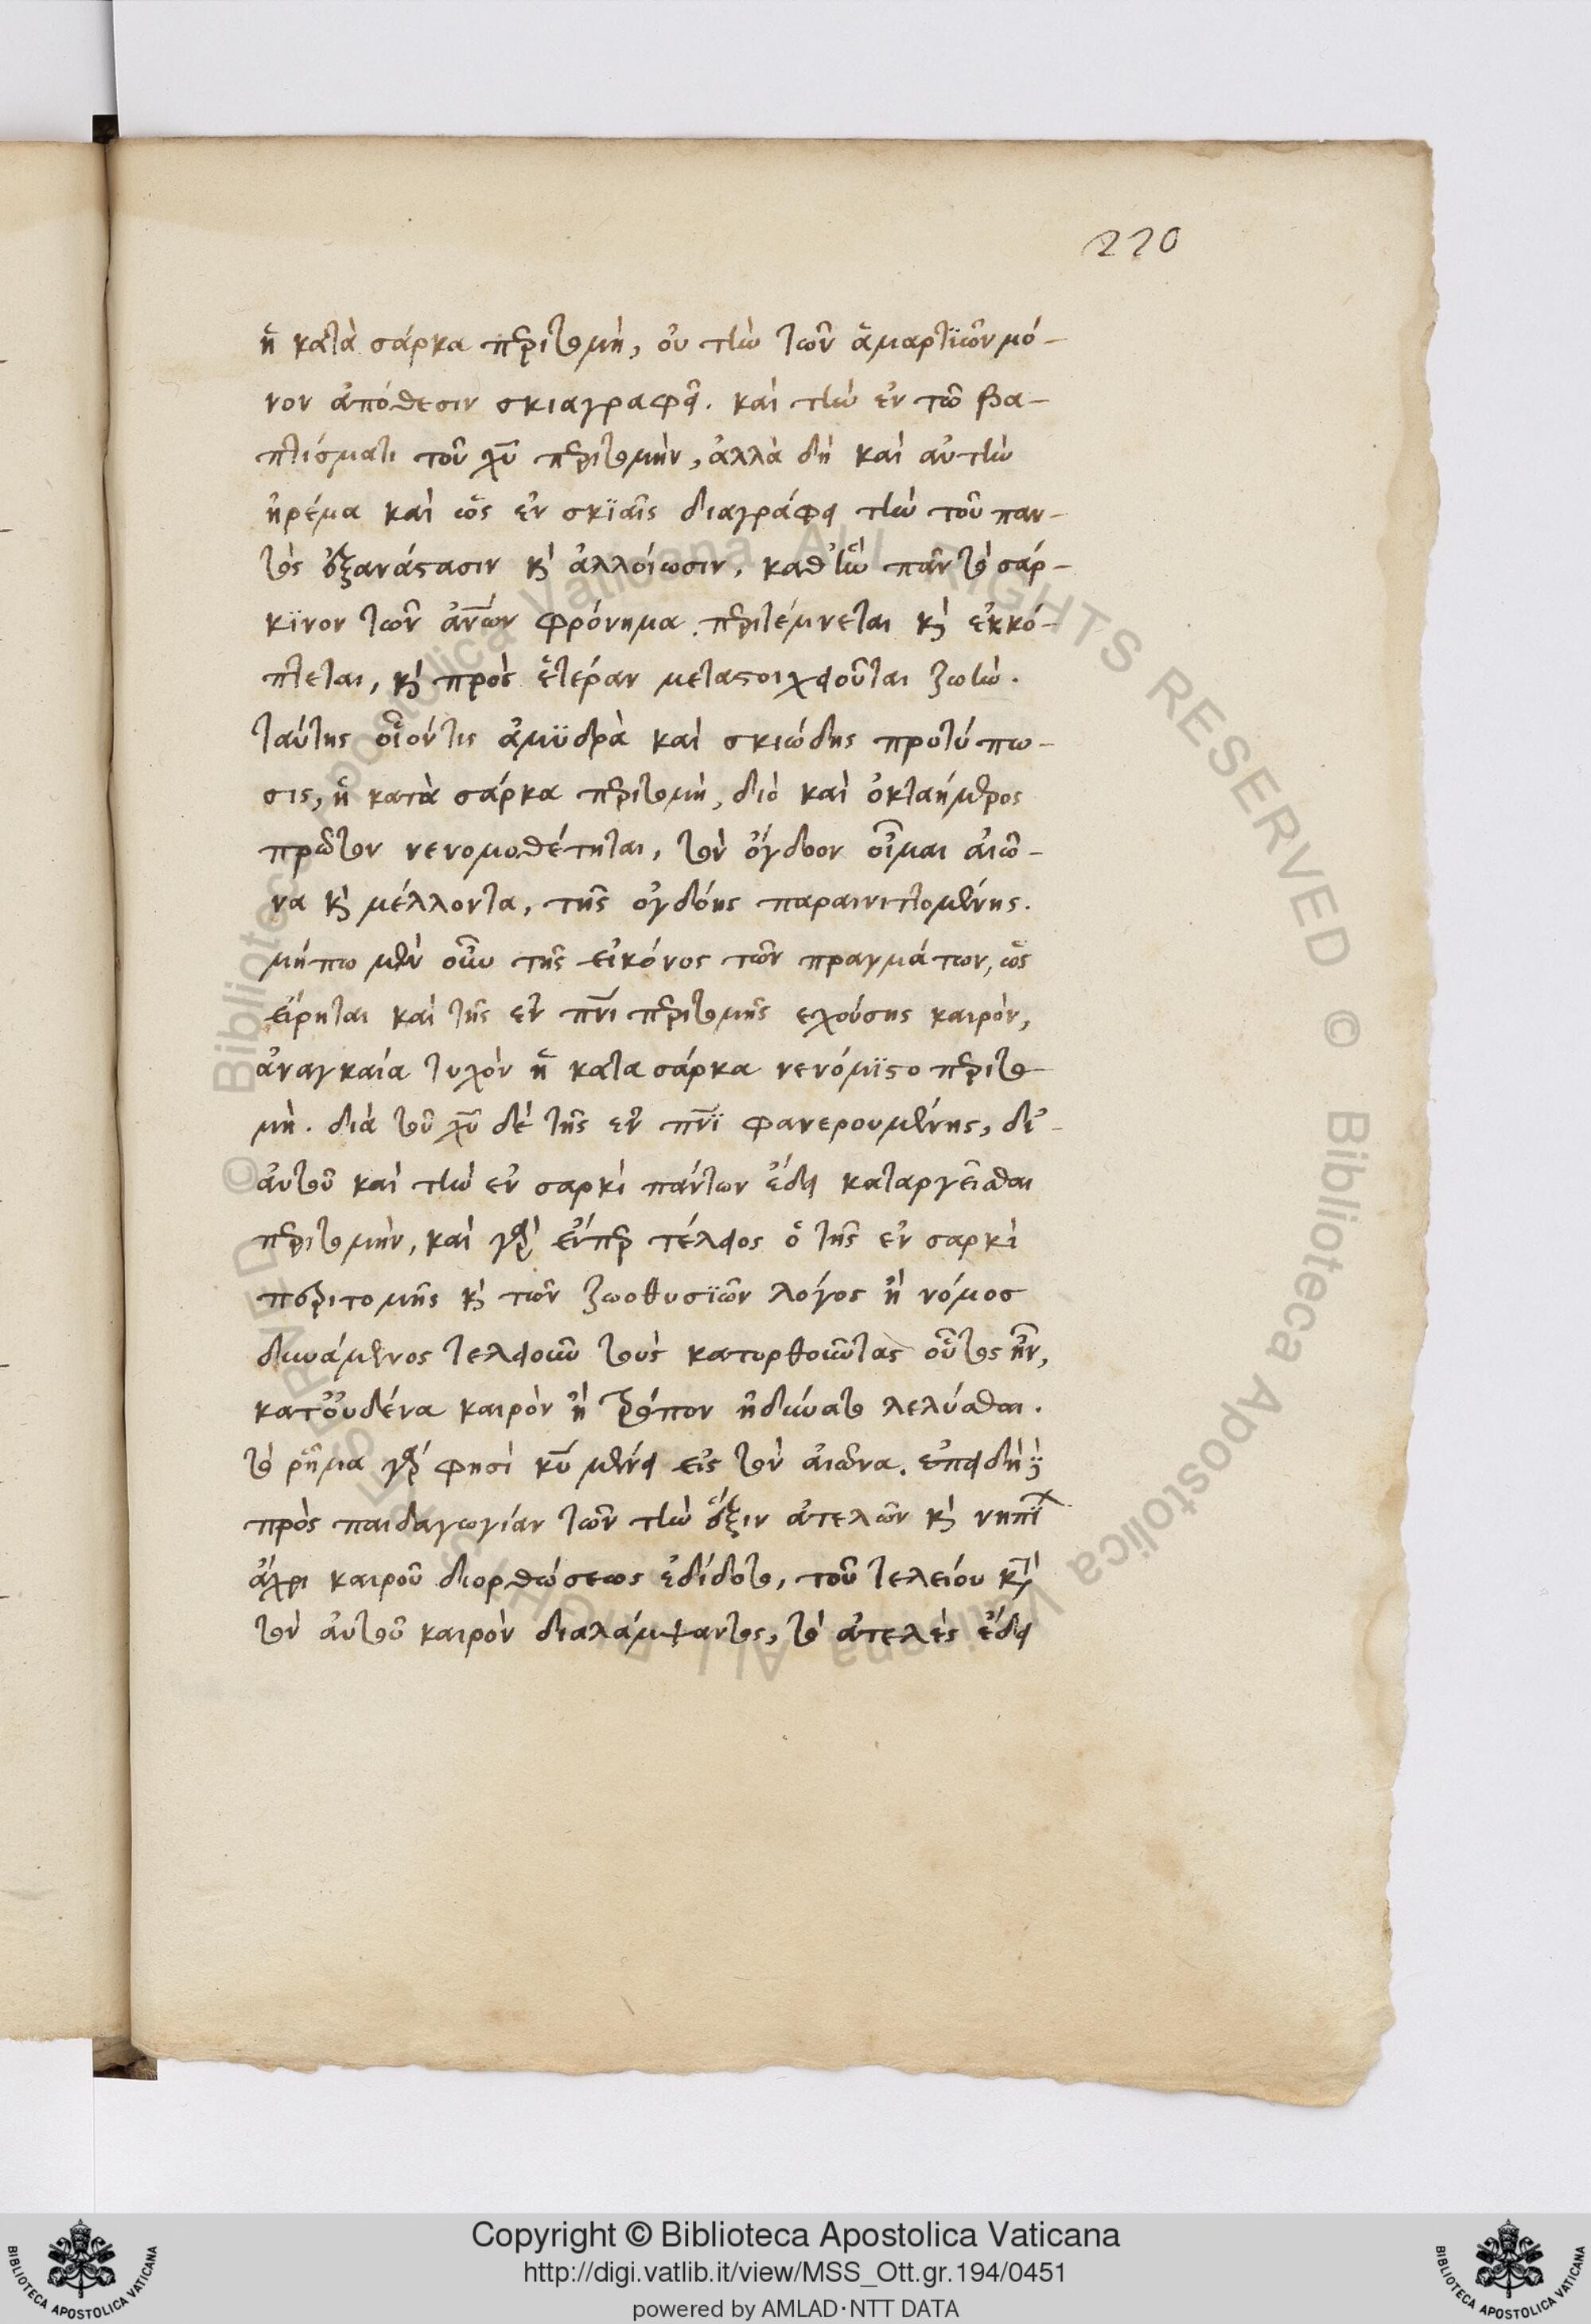 220
ἡ κατὰ σάρκα περιτομὴ, οὐ τὴν τῶν ἁμαρτϊῶν μό-
νον ἀπόθεσιν σκιαγραφεῖ. καὶ τὴν ἐν τῶ βα-
πτίσματι τοῦ χυ̅ περιτομὴν, ἀλλὰ δὴ καὶ αὐτὴν
ἠρέμα καὶ ὡς ἐν σκϊαῖς διαγράφει τὴν τοῦ παν-
τὸς ἐξανάστασιν κὶ ἀλλοίωσιν, καθ' ἣν πᾶν τὸ σάρ-
κϊνον τῶν ἀν̅ων φρόνημα περιτέμνεται κὶ ἐκκό-
πτεται, κὶ πρὸς ἑτέραν μεταστοιχειοῦται ζωὴν.
ταύτης οἱονεί τις ἀμϋδρὰ καὶ σκιώδης προτύπω-
σις, ἡ κατὰ σάρκα περιτομὴ, διὸ καὶ ὀκταήμερος
πρῶτον νενομοθέτηται, τὸν ὄγδοον οἶμαι αἰῶ-
να κὶ μέλλοντα, τῆς ὀγδόης παραινιττομένης.
μήπω μὲν οὖν τῆς εἰκόνος τῶν πραγμάτων, ὡς
εἴρηται καὶ τῆς ἐν πν̅ι περιτομῆς εχούσης καιρὸν,
ἀναγκαία τυχὸν ἡ κατα σάρκα νενόμϊστο περιτο-
μὴ. διὰ τοῦ χυ̅ δὲ τῆς ἐν πν̅ϊ φανερουμένης, δι'
αὐτοῦ καὶ τὴν ἐν σαρκὶ πάντων ἔδει καταργεῖσθαι
περιτομὴν, καὶ γὰρ εἴπερ τέλειος ὁ τῆς ἐν σαρκὶ
περιτομῆς κὶ τῶν ζωοθυσϊῶν λόγος ἢ νόμος
δυνάμενος τελειοῦν τοὺς κατορθοῦντας οὗτος ἦν,
κατ' οὐδένα καιρὸν ἢ τρόπον ἠδύνατο λελύσθαι.
τὸ ῥῆμα γάρ φησὶ κυ̅ μένει εἰς τὸν αἰῶνα. ἐπειδὴ
πρὸς παιδαγωγίαν τῶν τὴν ἕξιν ἀτελῶν κὶ νηπϊ
ἄχρι καιροῦ διορθώσεως ἐδίδοτο, τοῦ τελείου κατὰ
τὸν αὐτοῦ καιρὸν διαλάμψαντος, τὸ ἀτελὲς ἔδει
Copyright © Biblioteca Apostolica Vaticana
http://digi.vatlib.it/view/MSS_Ott.gr.194/0451
powered by AMLAD·NTT DATA
BIBLIOTECA APOSTOLICA VATICANA
BIBLIOTECA APOSTOLICA VATICANA
© Biblioteca Apostolica Vaticana ALL RIGHTS RESERVED
© Biblioteca Apostolica Vaticana ALL RIGHTS RESERVED